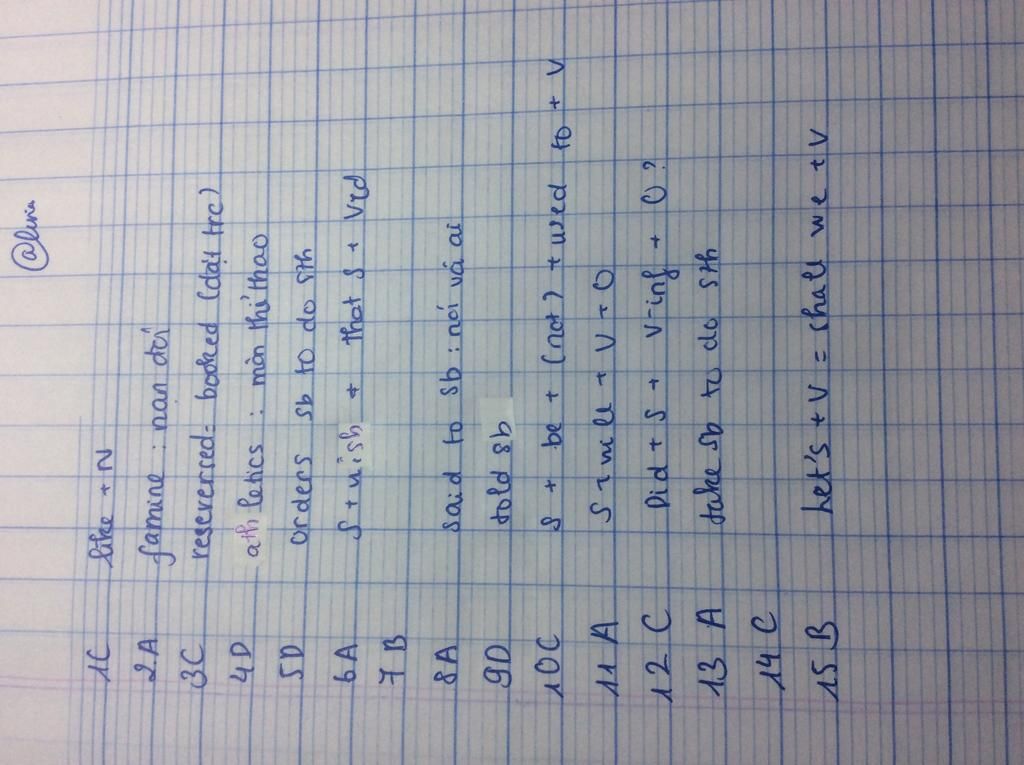 @livia
1C like + N
2A famine : nạn đói
3C reserversed = booked (đặt trc)
4D athletics : môn thể thao
5D orders sb to do sth
6A S + wish + that S + Ved
7B
8A said to sb : nói vâ ai
9D told sb
10C S + be + (not) + used to + V
11A S + will + V + O
12C Did + S + V-inf + O ?
13A take sb to do sth
14C
15B Let's + V = Shall we + V